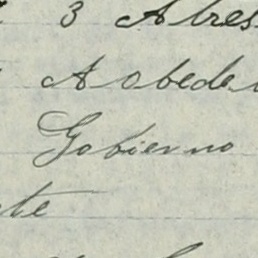 3 Abres
A obede
Gobierno
te